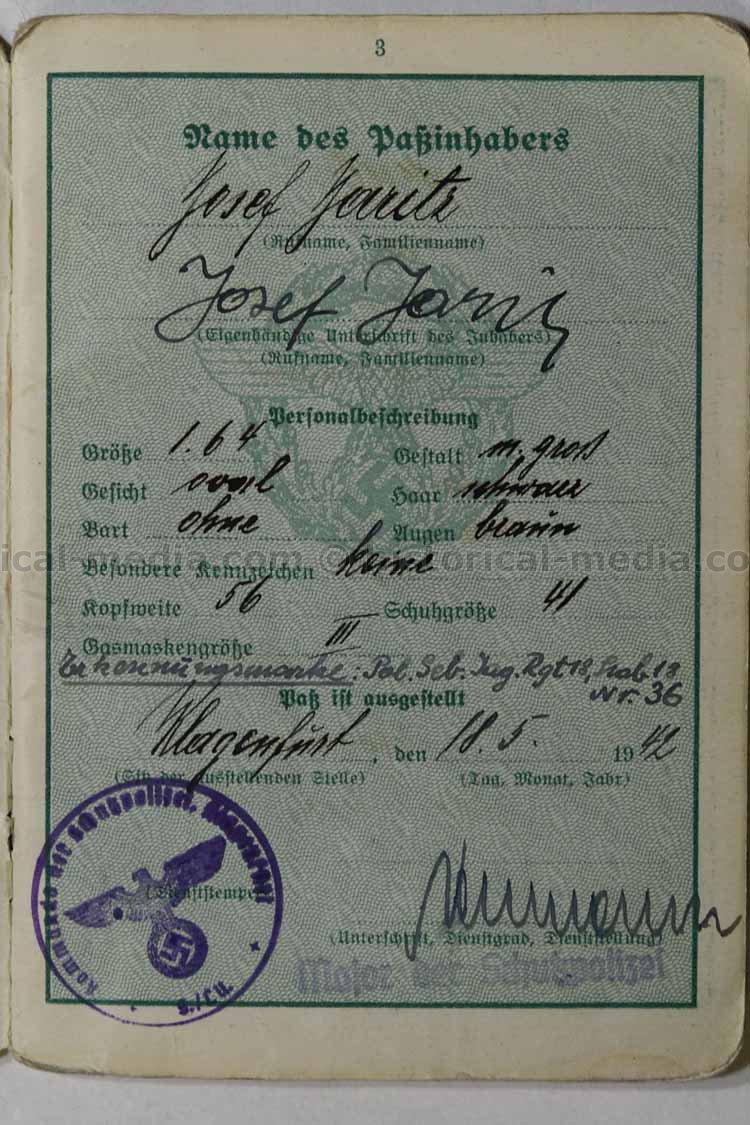 3
Name des Paßinhabers
Josef Jaritz
(Rufname, Familienname)
Josef Jaritz
(Eigenhändige Unterschrift des Inhabers)
(Rufname, Familienname)
Personalbeschreibung
Größe 1.64 Gestalt m. groß
Gesicht oval Haar schwarz
Bart ohne Augen braun
ical-media.com © historical-media.co
Besondere Kennzeichen keine
Kopfweite 56 Schuhgröße 41
Gasmaskengröße III
Erkennungsmarke: Pol. Geb. Jäg. Rgt 18, Stab 18
Nr. 36
Paß ist ausgestellt
Klagenfurt, den 18. 5. 1942
(Sitz der ausstellenden Stelle) (Tag, Monat, Jahr)
Kommando der Schutzpolizei, Klagenfurt
(Dienststempel)
(Unterschrift, Dienstgrad, Dienststellung)
Major der Schutzpolizei